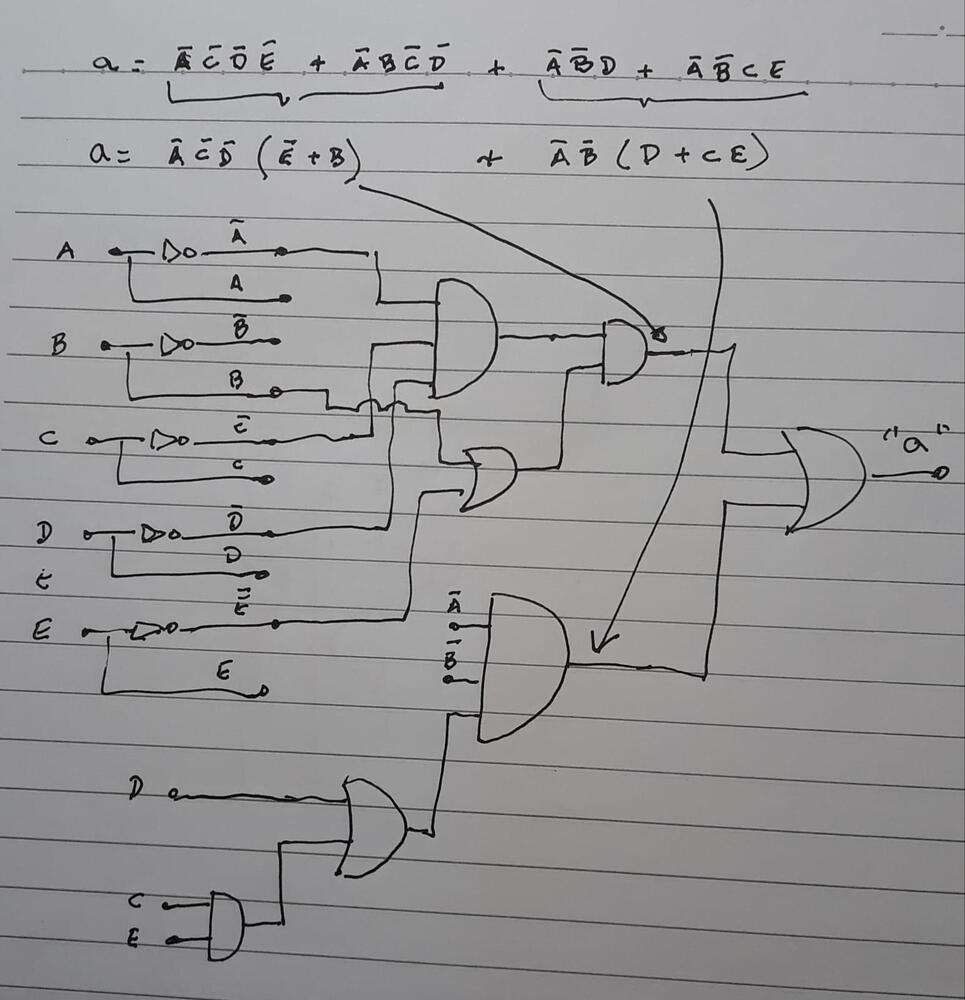 a = A̅ C̅ D̅ E̅ + A̅ B C̅ D̅ + A̅ B̅ D + A̅ B̅ C E
a = A̅ C̅ D̅ (E̅ + B) + A̅ B̅ (D + C E)
A A̅
A
B B̅
B
C C̅
C
"a"
D D̅
D
E E̅
E
A̅
B̅
D
C
E